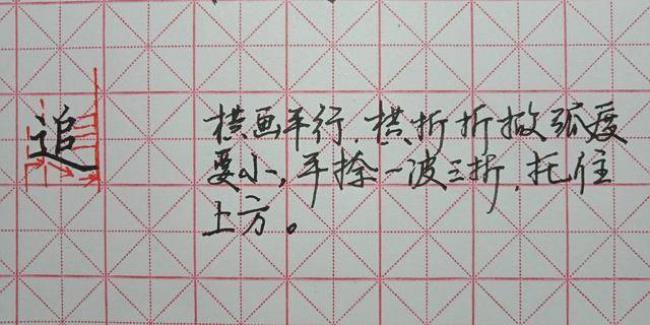 追
横画平行，横折折撇弧度
要小，平捺一波三折，托住
上方。